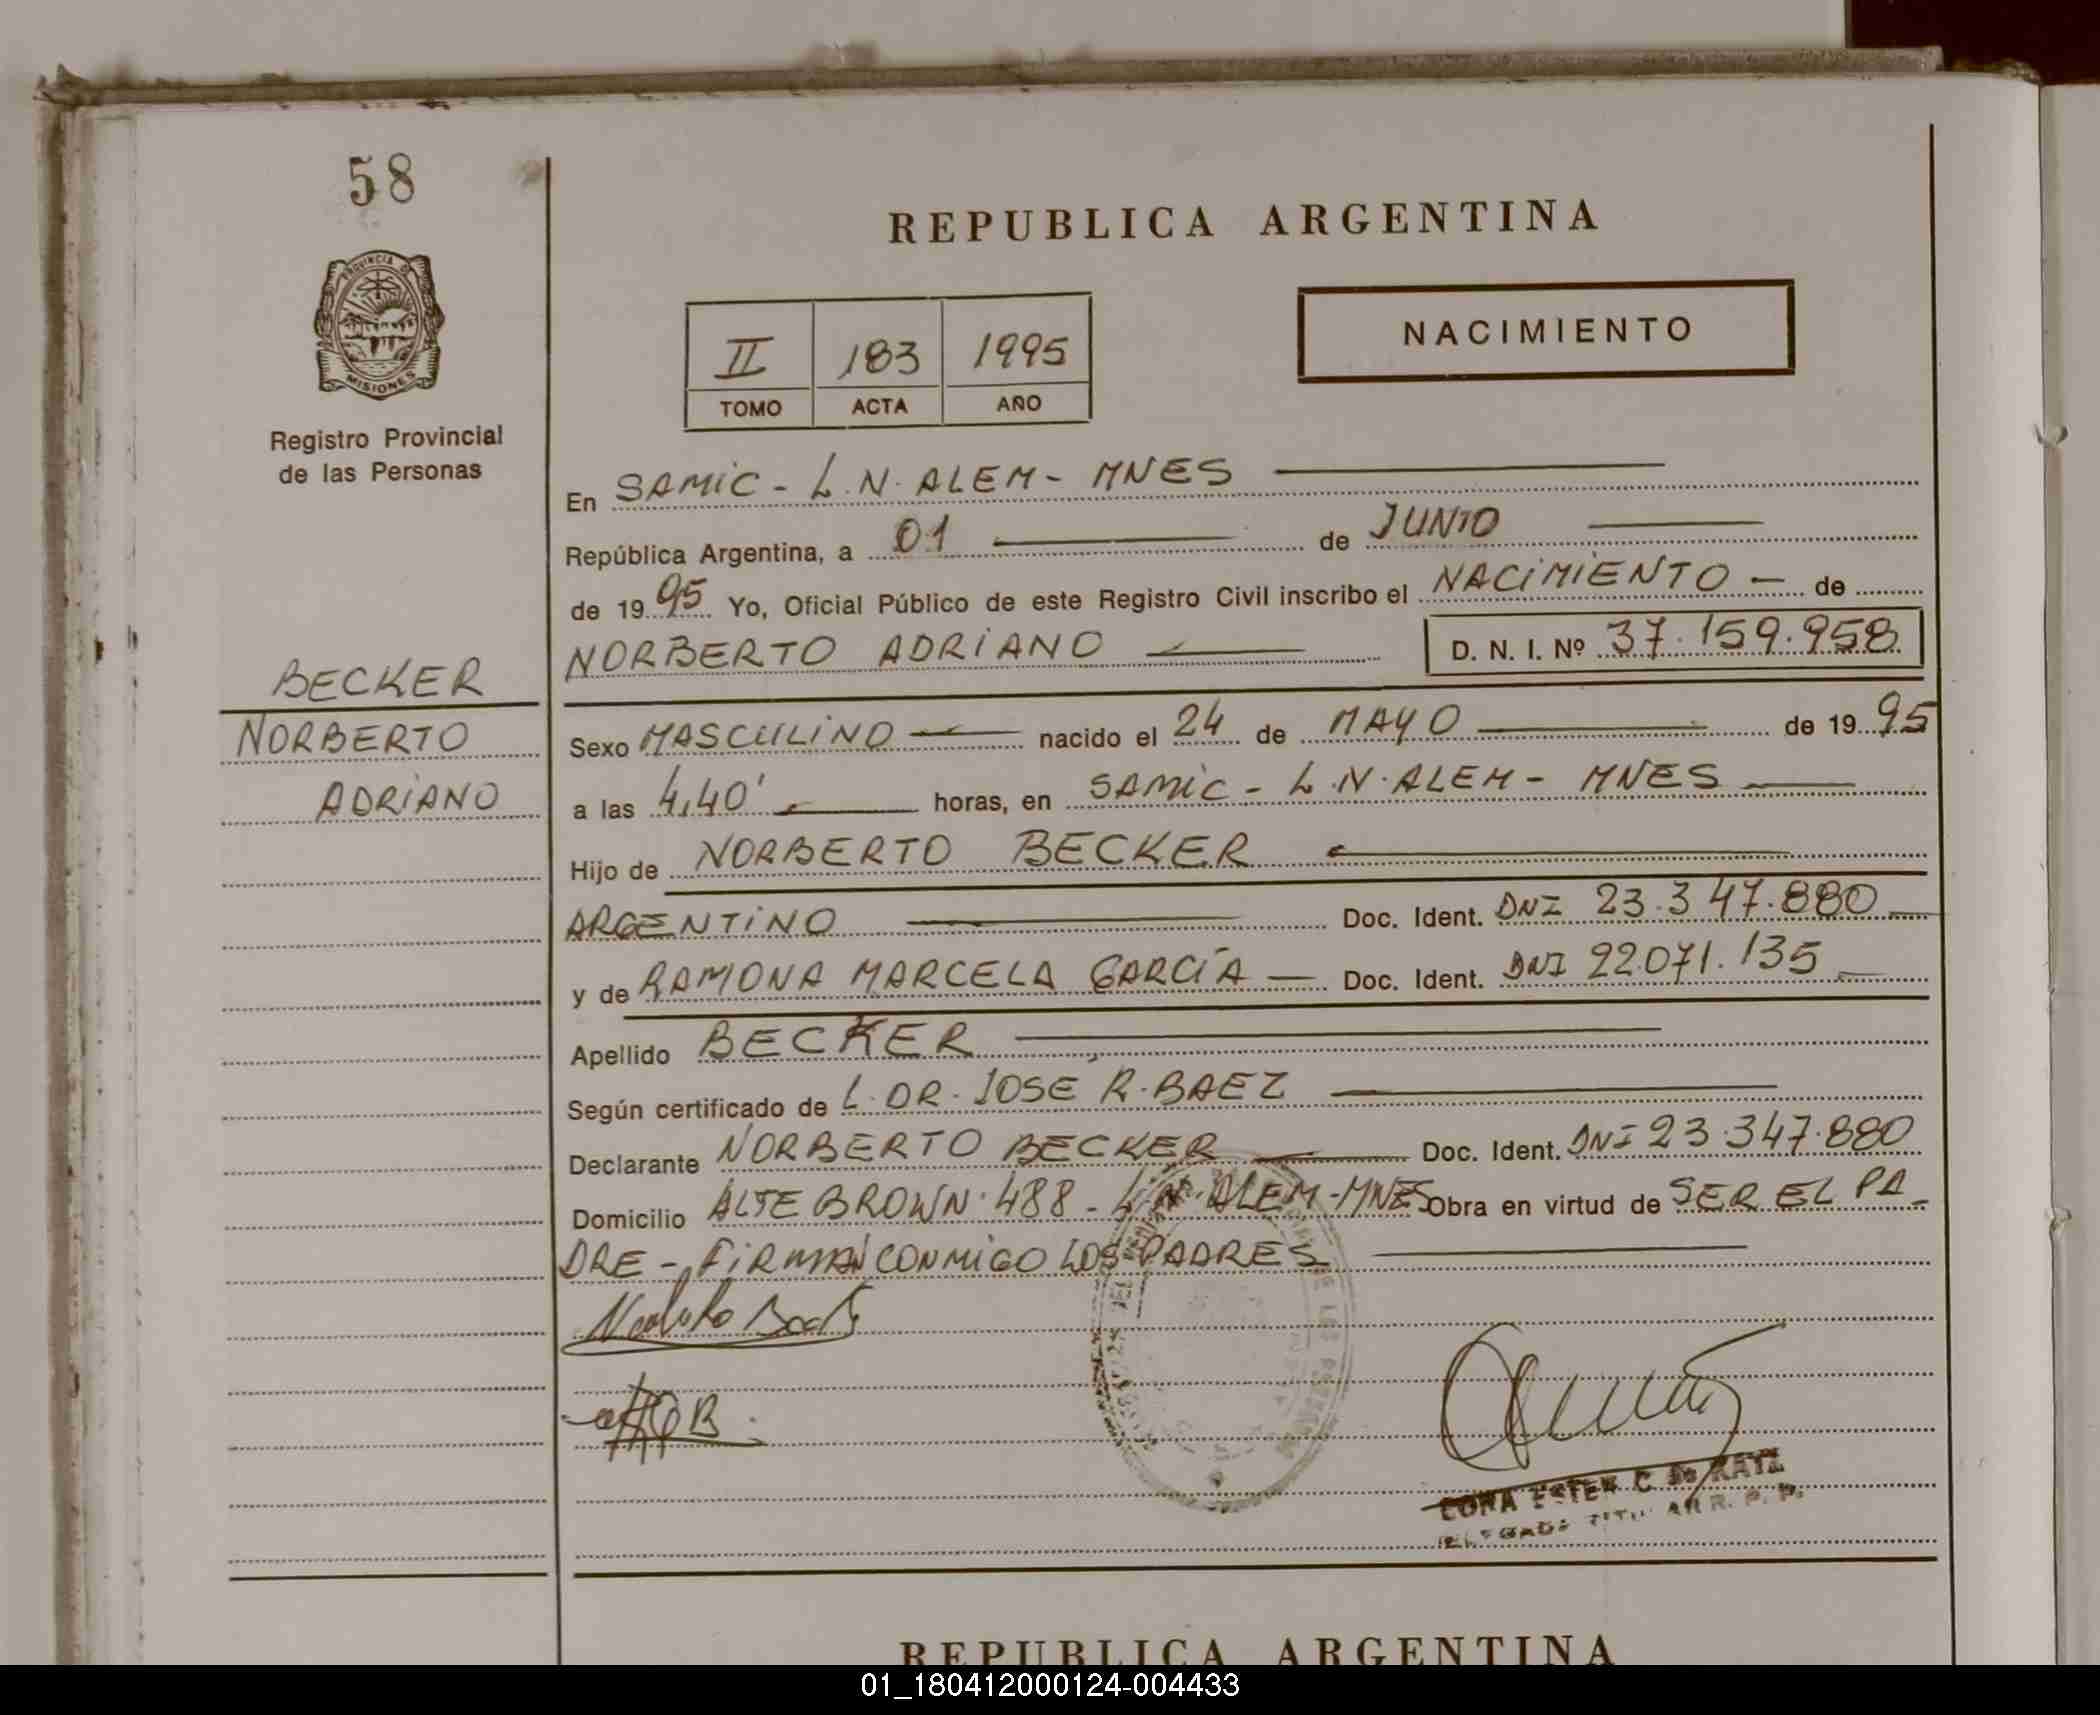 58
PROVINCIA DE
MISIONES
Registro Provincial
de las Personas
BECKER
NORBERTO
ADRIANO
REPUBLICA ARGENTINA
II 183 1995
TOMO ACTA AÑO
NACIMIENTO
En SAMIC - L.N. ALEM - MNES
República Argentina, a 01 de JUNIO
de 1995 Yo, Oficial Público de este Registro Civil inscribo el NACIMIENTO - de
NORBERTO ADRIANO D. N. I. Nº 37.159.958
Sexo MASCULINO nacido el 24 de MAYO de 1995
a las 4,40' horas, en SAMIC - L.N. ALEM - MNES
Hijo de NORBERTO BECKER
ARGENTINO Doc. Ident. DNI 23.347.880
y de RAMONA MARCELA GARCÍA - Doc. Ident. DNI 22.071.135
Apellido BECKER
Según certificado de L. DR. JOSÉ R. BAEZ
Declarante NORBERTO BECKER Doc. Ident. DNI 23.347.880
Domicilio ALTE BROWN. 488 - L.N. ALEM - MNES Obra en virtud de SER EL PA-
DRE - FIRMAN CONMIGO LOS PADRES
ESTER C. De
R. P. P.
REPUBLICA ARGENTINA
01_180412000124-004433